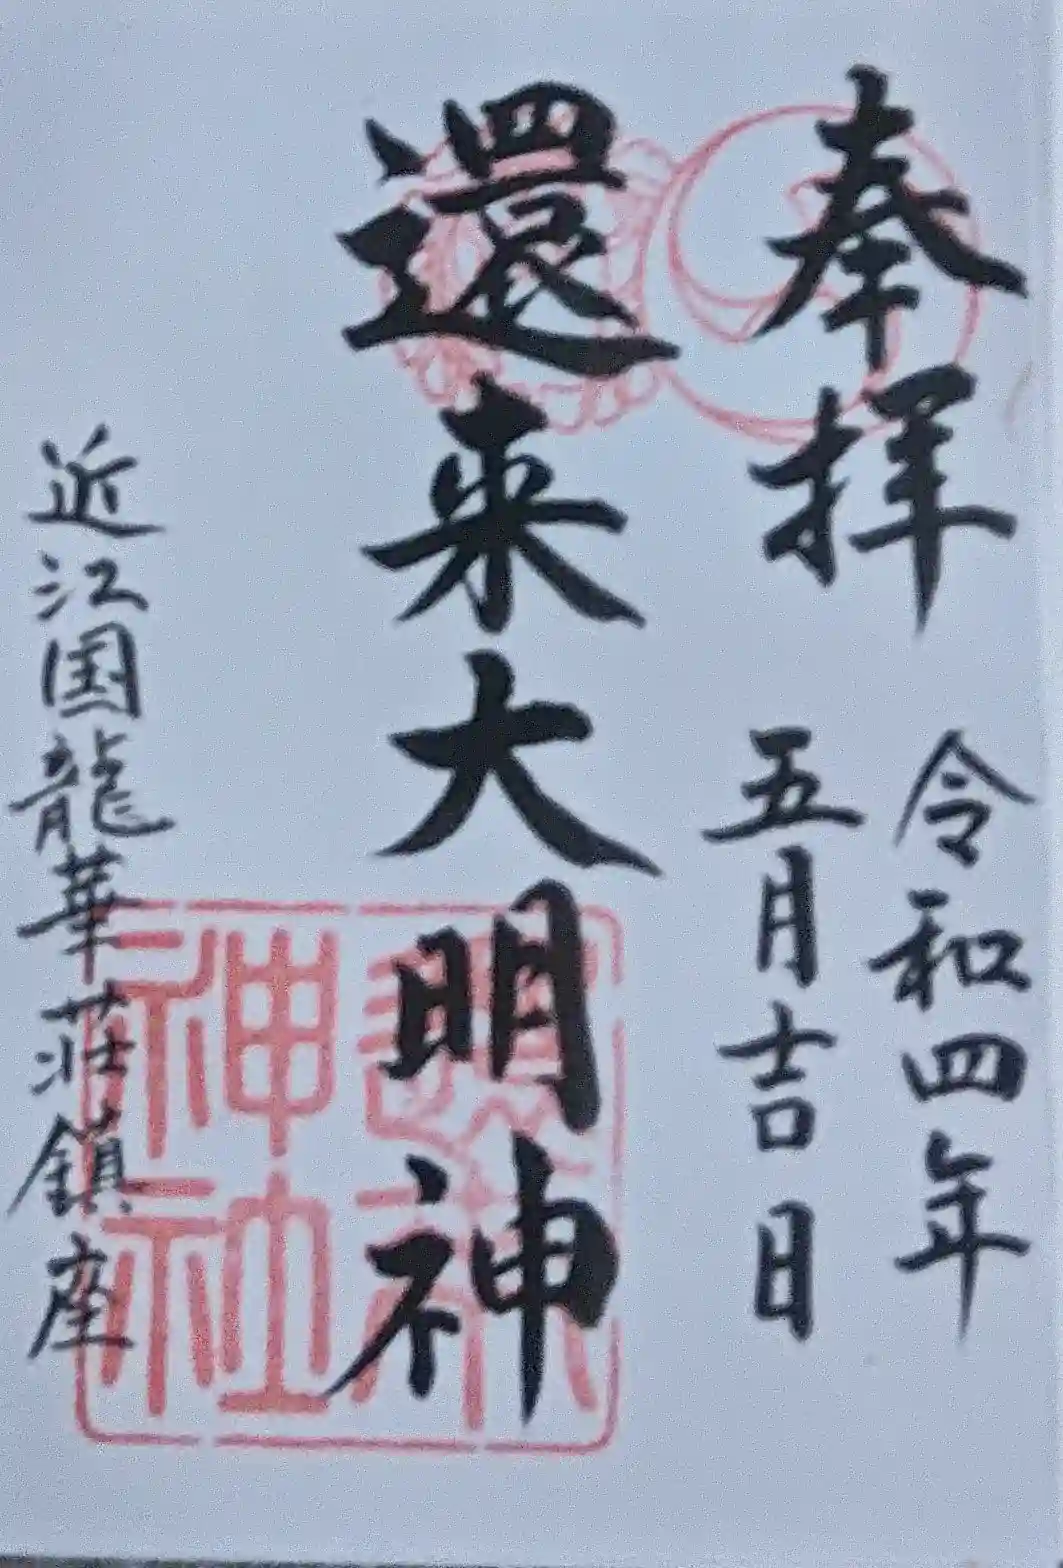 奉拝
令和四年
五月吉日
還来大明神
近江国龍華荘鎮座
還来神社